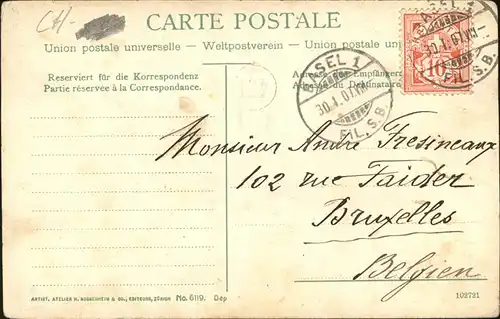 CH-
CARTE POSTALE
Union postale universelle – Weltpostverein – Union postale
Reserviert für die Korrespondenz
Partie réservée à la Correspondance.
Adresse des Empfängers
Adresse du Destinataire
BASEL 1
30.I.07.VII-
FIL. S. B.
BASEL 1
30.I.07.VII-
FIL. S. B.
10
Monsieur André Fresineaux
102 rue Faider
Bruxelles
Belgien
ARTIST. ATELIER H. GUGGENHEIM & CO., EDITEURS, ZÜRICH No. 6119. Dép
102721